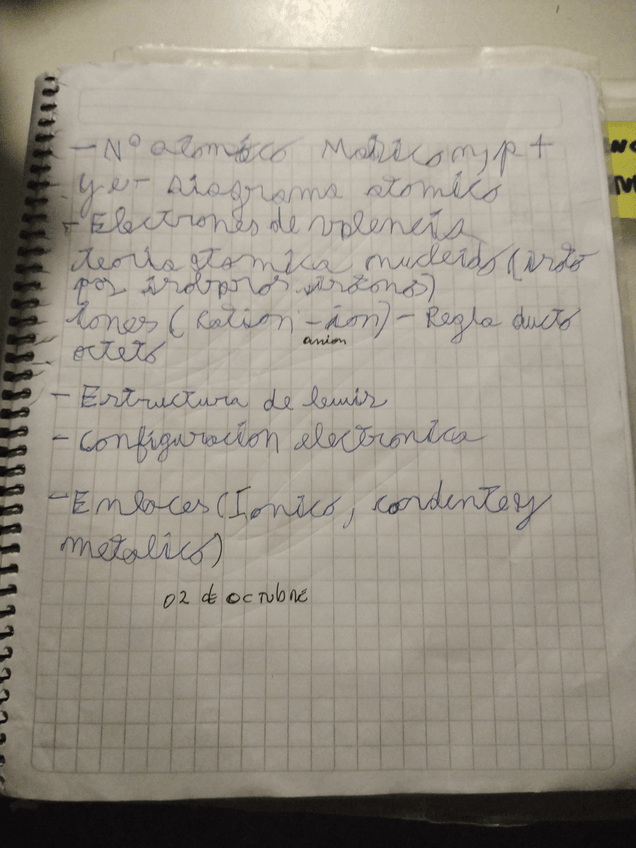 - N° atomico Masico n, p+
y e- Diagrama atomico
- Electrones de valencia
teoria atomica nucleidos (isoto
pos isobaros isotonos)
Iones (Cation -ion) - Regla dueto
anion
octeto
- Estructura de lewis
- Configuracion electronica
- Enlaces (Ionico,
metalico)
02 de octubre
NO
M